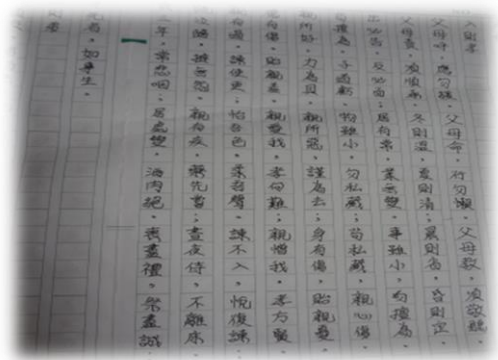 入則孝
父母呼，應勿緩，父母命，行勿懶，父母教，須敬聽
父母責，須順承，冬則溫，夏則清，晨則省，昏則定
出必告，反必面，居有常，業無變，事雖小，勿擅為
勿擅為，子道虧，物雖小，勿私藏，苟私藏，親心傷
親所好，力為具，親所惡，謹為去，身有傷，貽親憂
有傷，貽親羞，親愛我，孝何難，親憎我，孝方賢
親有過，諫使更，怡吾色，柔吾聲，諫不入，悅復諫
泣隨，撻無怨，親有疾，藥先嘗，晝夜侍，不離床
年，常悲咽，居處變，酒肉絕，喪盡禮，祭盡誠
死者，如事生。